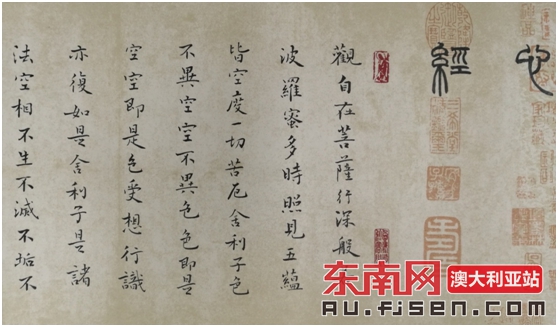 心經
觀自在菩薩行深般
波羅蜜多時照見五蘊
皆空度一切苦厄舍利子色
不異空空不異色色即是
空空即是色受想行識
亦復如是舍利子是諸
法空相不生不滅不垢不
东南网 澳大利亚站
au.fjsen.com